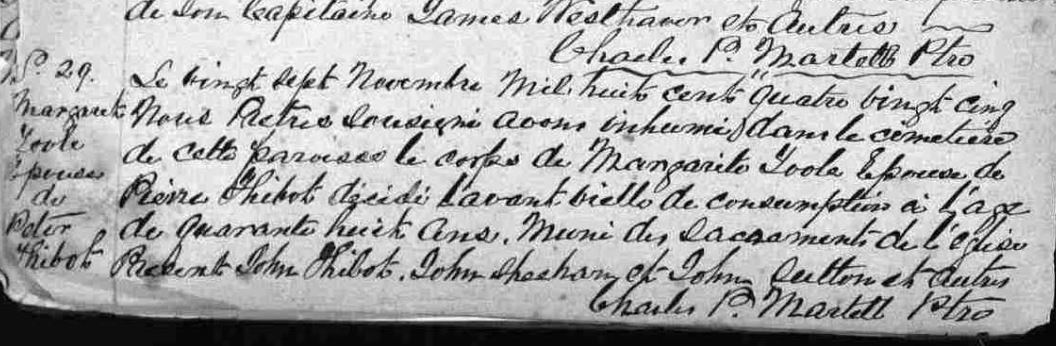 de Son Capitaine James Westhaver et Autres
Charles P. Martell Ptre
No. 29.
Margarite
Toole
Epouse
de
Peter
Thibot
Le vingt sept Novembre Mil huit cent quatre vingt cinq
Nous Pretres Sousigné avons inhumé dans le cimetiere
de cette paroisse le corps de Margarite Toole Epouse de
Pierre Thibot décidé l'avant vielle de consumption à l'age
de quarante huit Ans. Muni des Sacraments de l'Eglise
Present John Thibot. John et John Sutton et Autres
Charles P. Martell Ptre